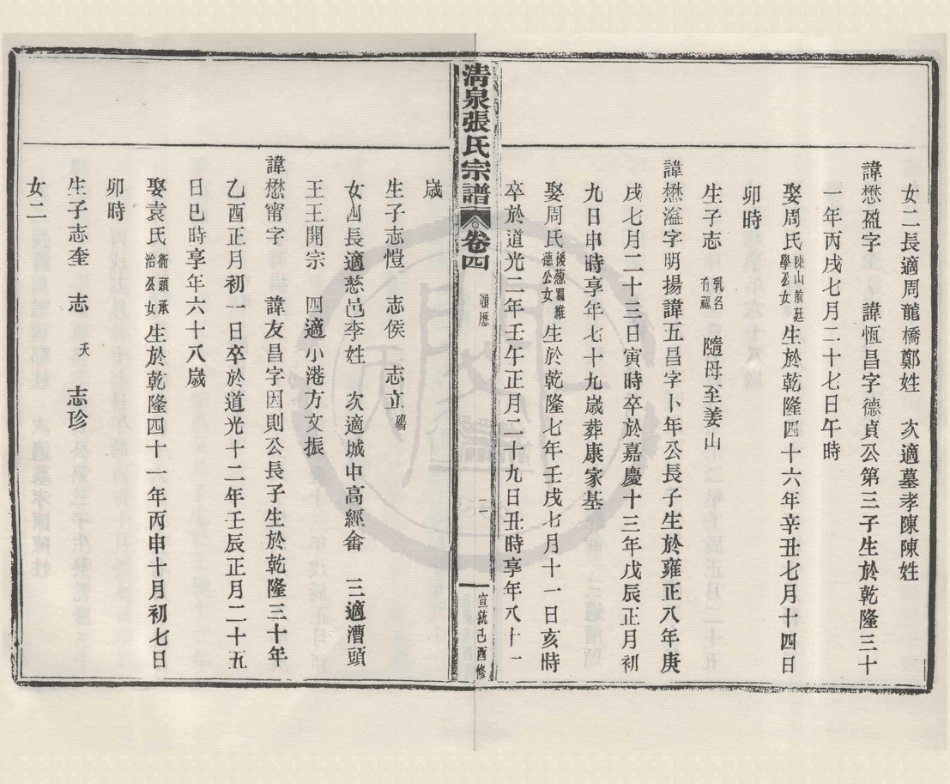 女二長適周龍橋鄭姓　次適墓孝陳陳姓
諱懋盈字　諱恆昌字德貞公第三子生於乾隆三十
一年丙戌七月二十七日午時
娶周氏陳山前廷學公女生於乾隆四十六年辛丑七月十四日
卯時
生子志　乳名有福　隨母至姜山
諱懋溢字明揚諱五昌字卜年公長子生於雍正八年庚
戌七月二十三日寅時卒於嘉慶十三年戊辰正月初
九日申時享年七十九歲葬康家基
娶周氏後葱德公女生於乾隆七年壬戌七月十一日亥時
卒於道光二年壬午正月二十九日丑時享年八十一
清泉張氏宗譜　卷四　宣統己酉修
歲
生子志愷　志侯　志立殤
女四長適慈邑李姓　次適城中高經畬　三適漕頭
王王開宗　四適小港方文振
諱懋甯字　諱友昌字因則公長子生於乾隆三十年
乙酉正月初一日卒於道光十二年壬辰正月二十五
日巳時享年六十八歲
娶袁氏衕頭承治公女生於乾隆四十一年丙申十月初七日
卯時
生子志奎　志　夭　志珍
女二